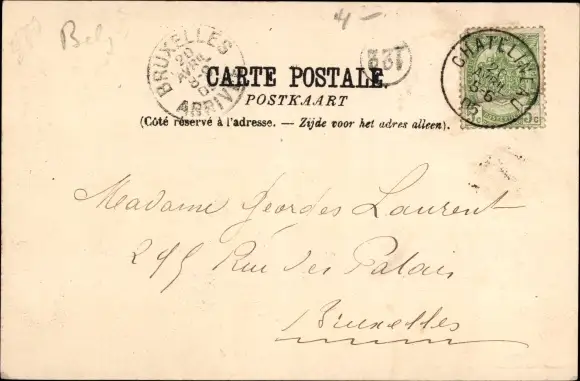 4 -
Belg
BRUXELLES
20
AVR
ARRIVÉE
CHATELINEAU
CARTE POSTALE.
POSTKAART
(Côté réservé à l'adresse. — Zijde voor het adres alleen).
Madame Georges Laurent
Rue des Palais
Bruxelles